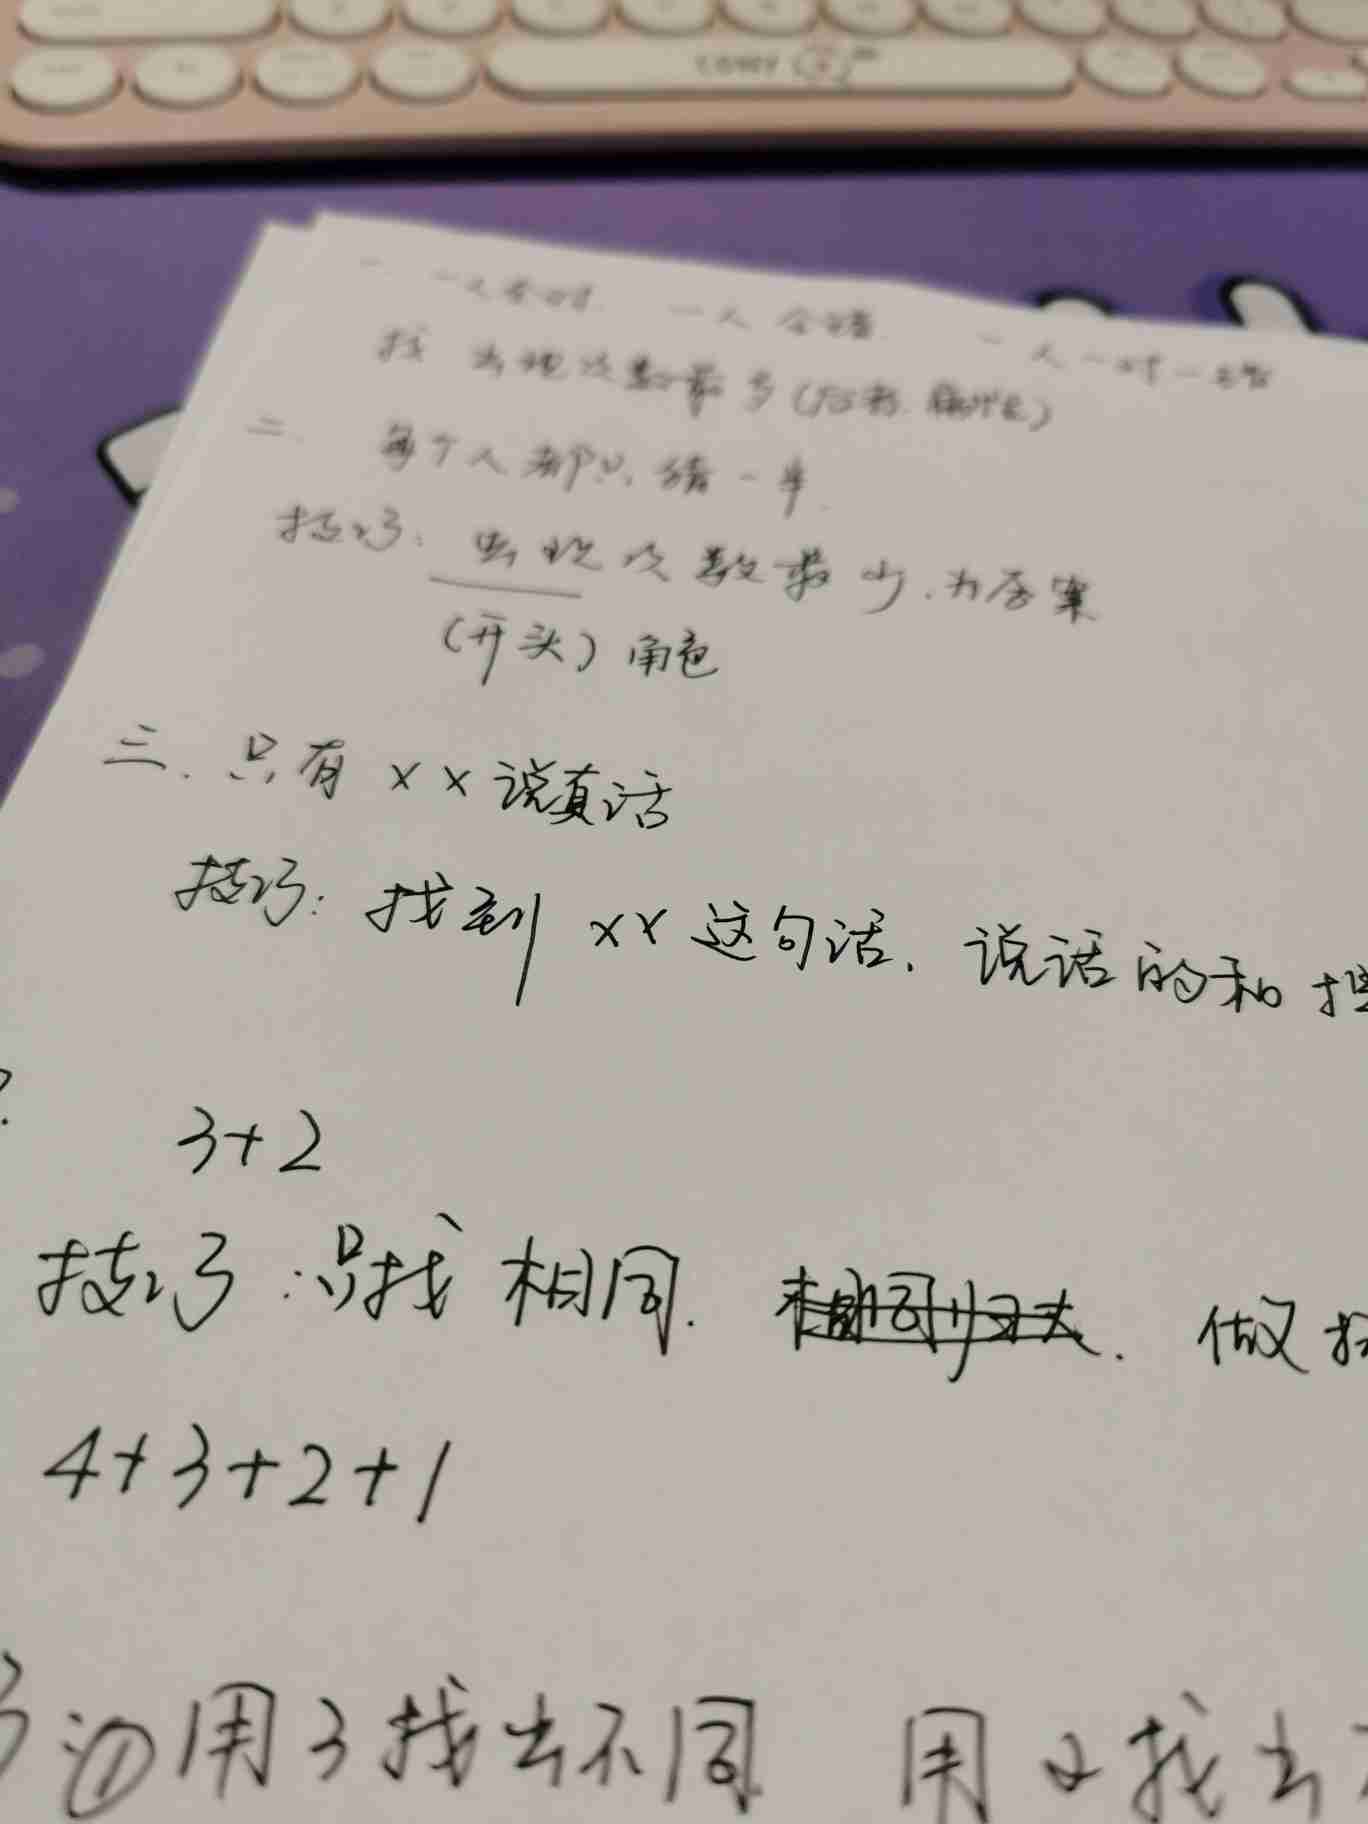 一人全对. 一人全错. 一人一对一错
找 出现次数最多
二. 每个人都只猜一半.
技巧: 出现次数最少.为答案
(开头) 角色
三. 只有 ×× 说真话
技巧: 找到 ×× 这句话. 说话的和
3+2
技巧:只找 相同. 做
4+3+2+1
①用3找出不同 用2找出